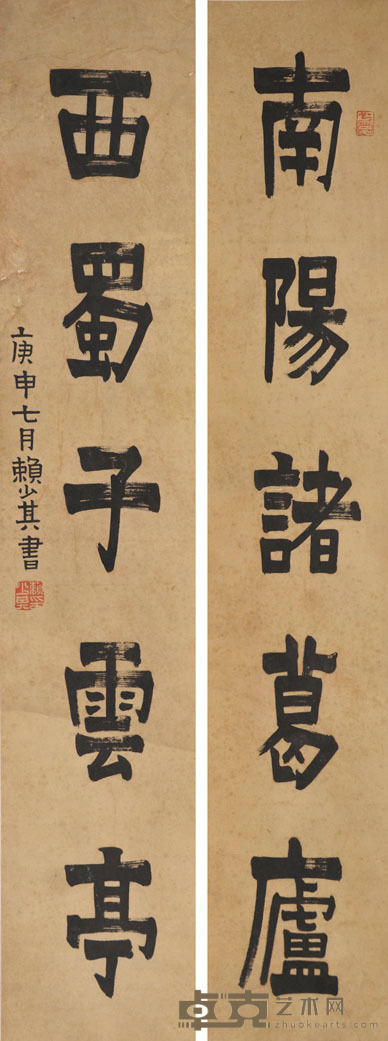 南陽諸葛廬
西蜀子雲亭
庚申七月賴少其書
卓克艺术网
zhuokearts.com